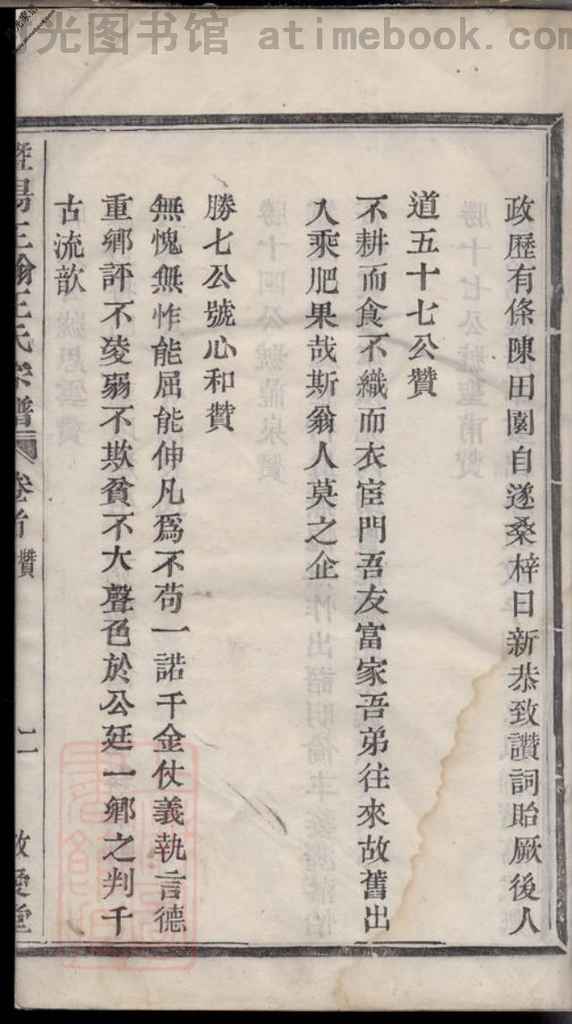 光图书馆 atimebook.com
政歷有條陳田園自遂桑梓日新恭致讚詞貽厥後人
道五十七公贊
不耕而食不織而衣宦門吾友富家吾弟往來故舊出
入乘肥果哉斯翁人莫之企
勝七公號心和贊
無愧無怍能屈能伸凡爲不苟一諾千金仗義執言德
重鄉評不凌弱不欺貧不大聲色於公廷一鄉之判千
古流歆
暨陽 王氏宗譜 卷首 贊 二 敬愛堂